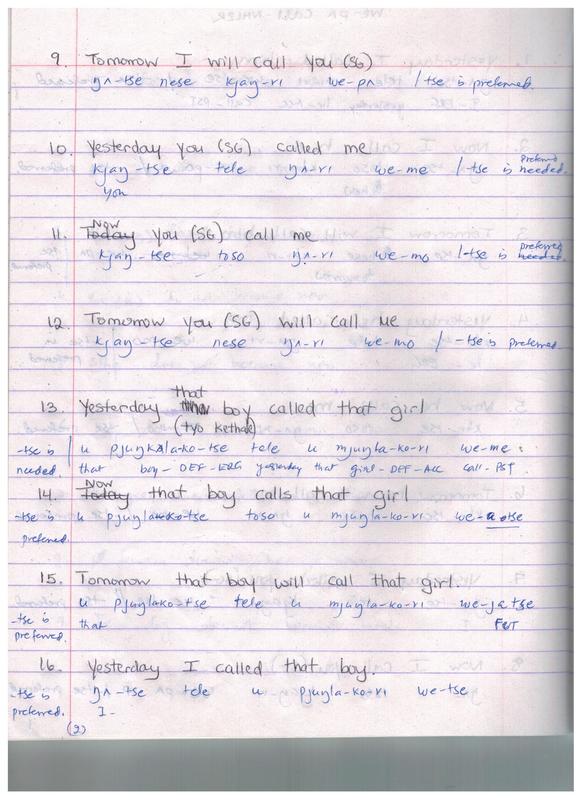 9. Tomorrow I will call you (SG)
ŋʌ-tse nese kjaŋ-ri we-pʌ / tse is preferred.
10. Yesterday you (SG) called me
preferred
kjaŋ-tse tele ŋʌ-ri we-me /-tse is needed.
you
Now
11. Today you (SG) call me
preferred
kjaŋ-tse toso ŋʌ-ri we-mo /-tse is needed.
12. Tomorrow you (SG) will call me
kjaŋ-tse nese ŋʌ-ri we-mo / -tse is preferred
that
13. Yesterday boy called that girl
(tyo kethale)
-tse is / u pjuŋkʌla-ko-tse tele u mjuŋla-ko-ri we-me.
needed. that boy-DEF-ERG yesterday that girl-DEF-ACC call-PST
Now
14. Today that boy calls that girl
-tse is u pjuŋla-ko-tse toso u mjuŋla-ko-ri we-a otse
preferred.
15. Tomorrow that boy will call that girl.
u pjuŋlako-tse tele u mjuŋla-ko-ri we-jatse
-tse is that FUT
preferred.
16. Yesterday I called that boy.
-tse is ŋʌ-tse tele u pjuŋla-ko-ri we-tse
preferred. I-
(2)